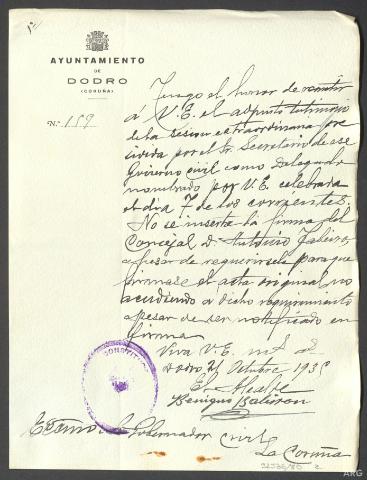 1º
AYUNTAMIENTO
DE
DODRO
(CORUÑA)
Nº 159
Tengo el honor de remitir
á V.E. el adjunto testimonio
de la sesion extraordinaria pre
sidida por el Sr. Secretario de ese
Gobierno civil como Delegado
nombrado por V.E. celebrada
el dia 7 de los corrientes.
No se inserta la firma del
Concejal D. Antonio
apesar de requerirsele para que
firmase el acta original no
acudiendo a dicho requerimiento
apesar de ser notificado en
forma
Viva V.E. m.s a.s
Dodro 21 Octubre 1935
El Alcalde
Benigno
CONSTITUC
Excmo Sr Gobernador Civil
La Coruña
ARG